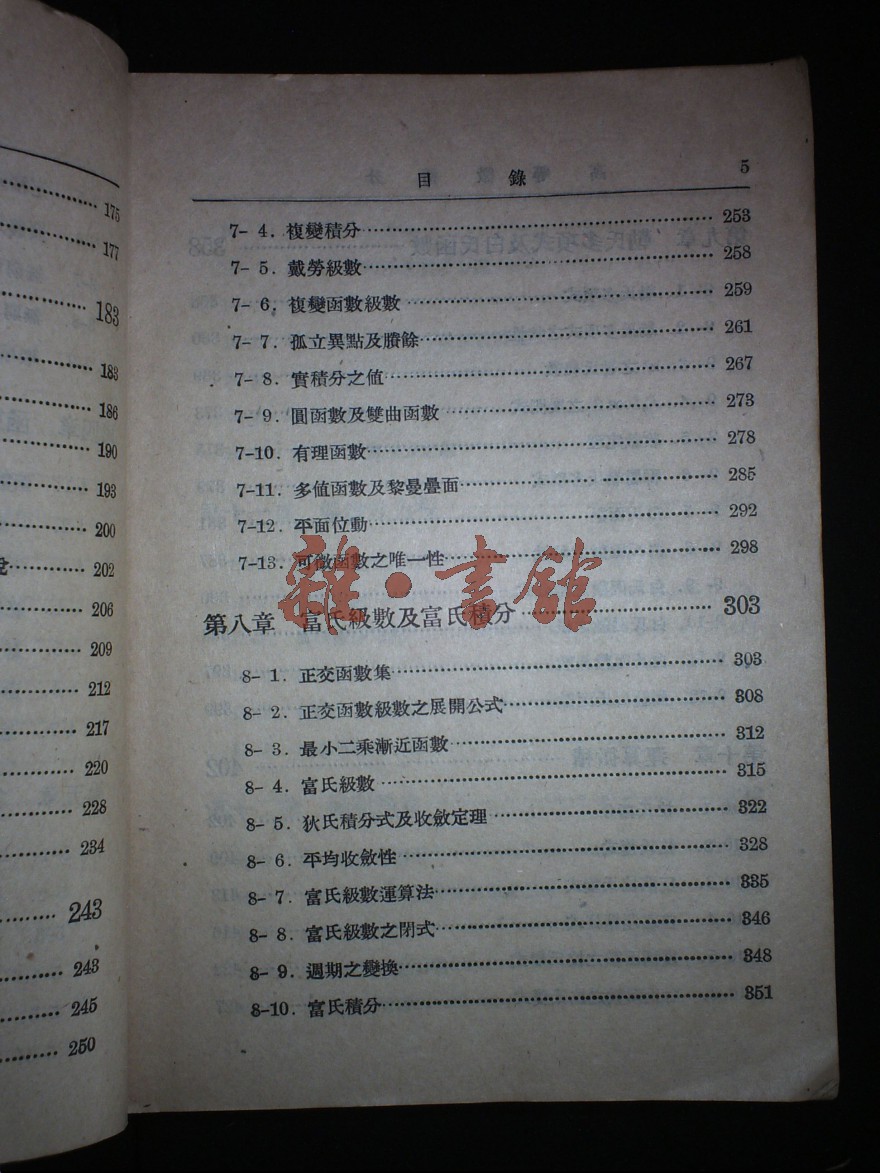 175
177
183
183
186
190
193
200
202
206
209
212
217
220
228
234
243
243
245
250
目 錄 5
7- 4. 複變積分 253
7- 5. 戴勞級數 258
7- 6. 複變函數級數 259
7- 7. 孤立異點及賸餘 261
7- 8. 實積分之值 267
7- 9. 圓函數及雙曲函數 273
7-10. 有理函數 278
7-11. 多値函數及黎曼疊面 285
7-12. 平面位動 292
7-13. 可微函數之唯一性 298
第八章 富氏級數及富氏積分 303
8- 1. 正交函數集 303
8- 2. 正交函數級數之展開公式 308
8- 3. 最小二乘漸近函數 312
8- 4. 富氏級數 315
8- 5. 狄氏積分式及收斂定理 322
8- 6. 平均收斂性 328
8- 7. 富氏級數運算法 335
8- 8. 富氏級數之閉式 346
8- 9. 週期之變換 348
8-10. 富氏積分 351
雜·書館